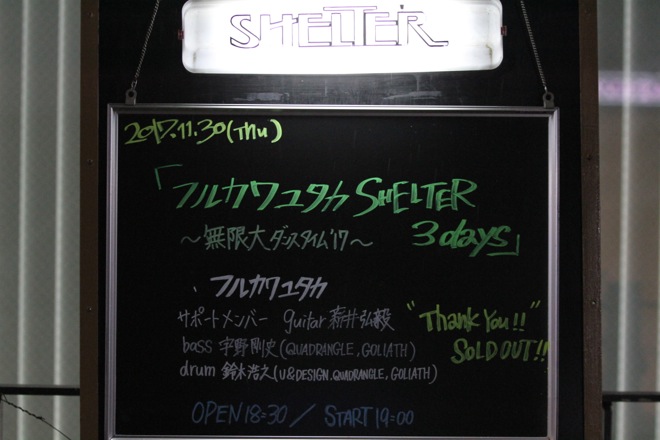 SHELTER
2017.11.30(Thu)
「フルカワユタカ SHELTER
～無限大ダンスタイム'17～ 3days」
、フルカワユタカ
サポートメンバー guitar 新井弘毅
bass 宇野剛史(QUADRANGLE, GOLIATH)
drum 鈴木浩之(U&DESIGN, QUADRANGLE, GOLIATH)
"Thank You!!"
SOLD OUT!!
OPEN 18=30 / START 19=00